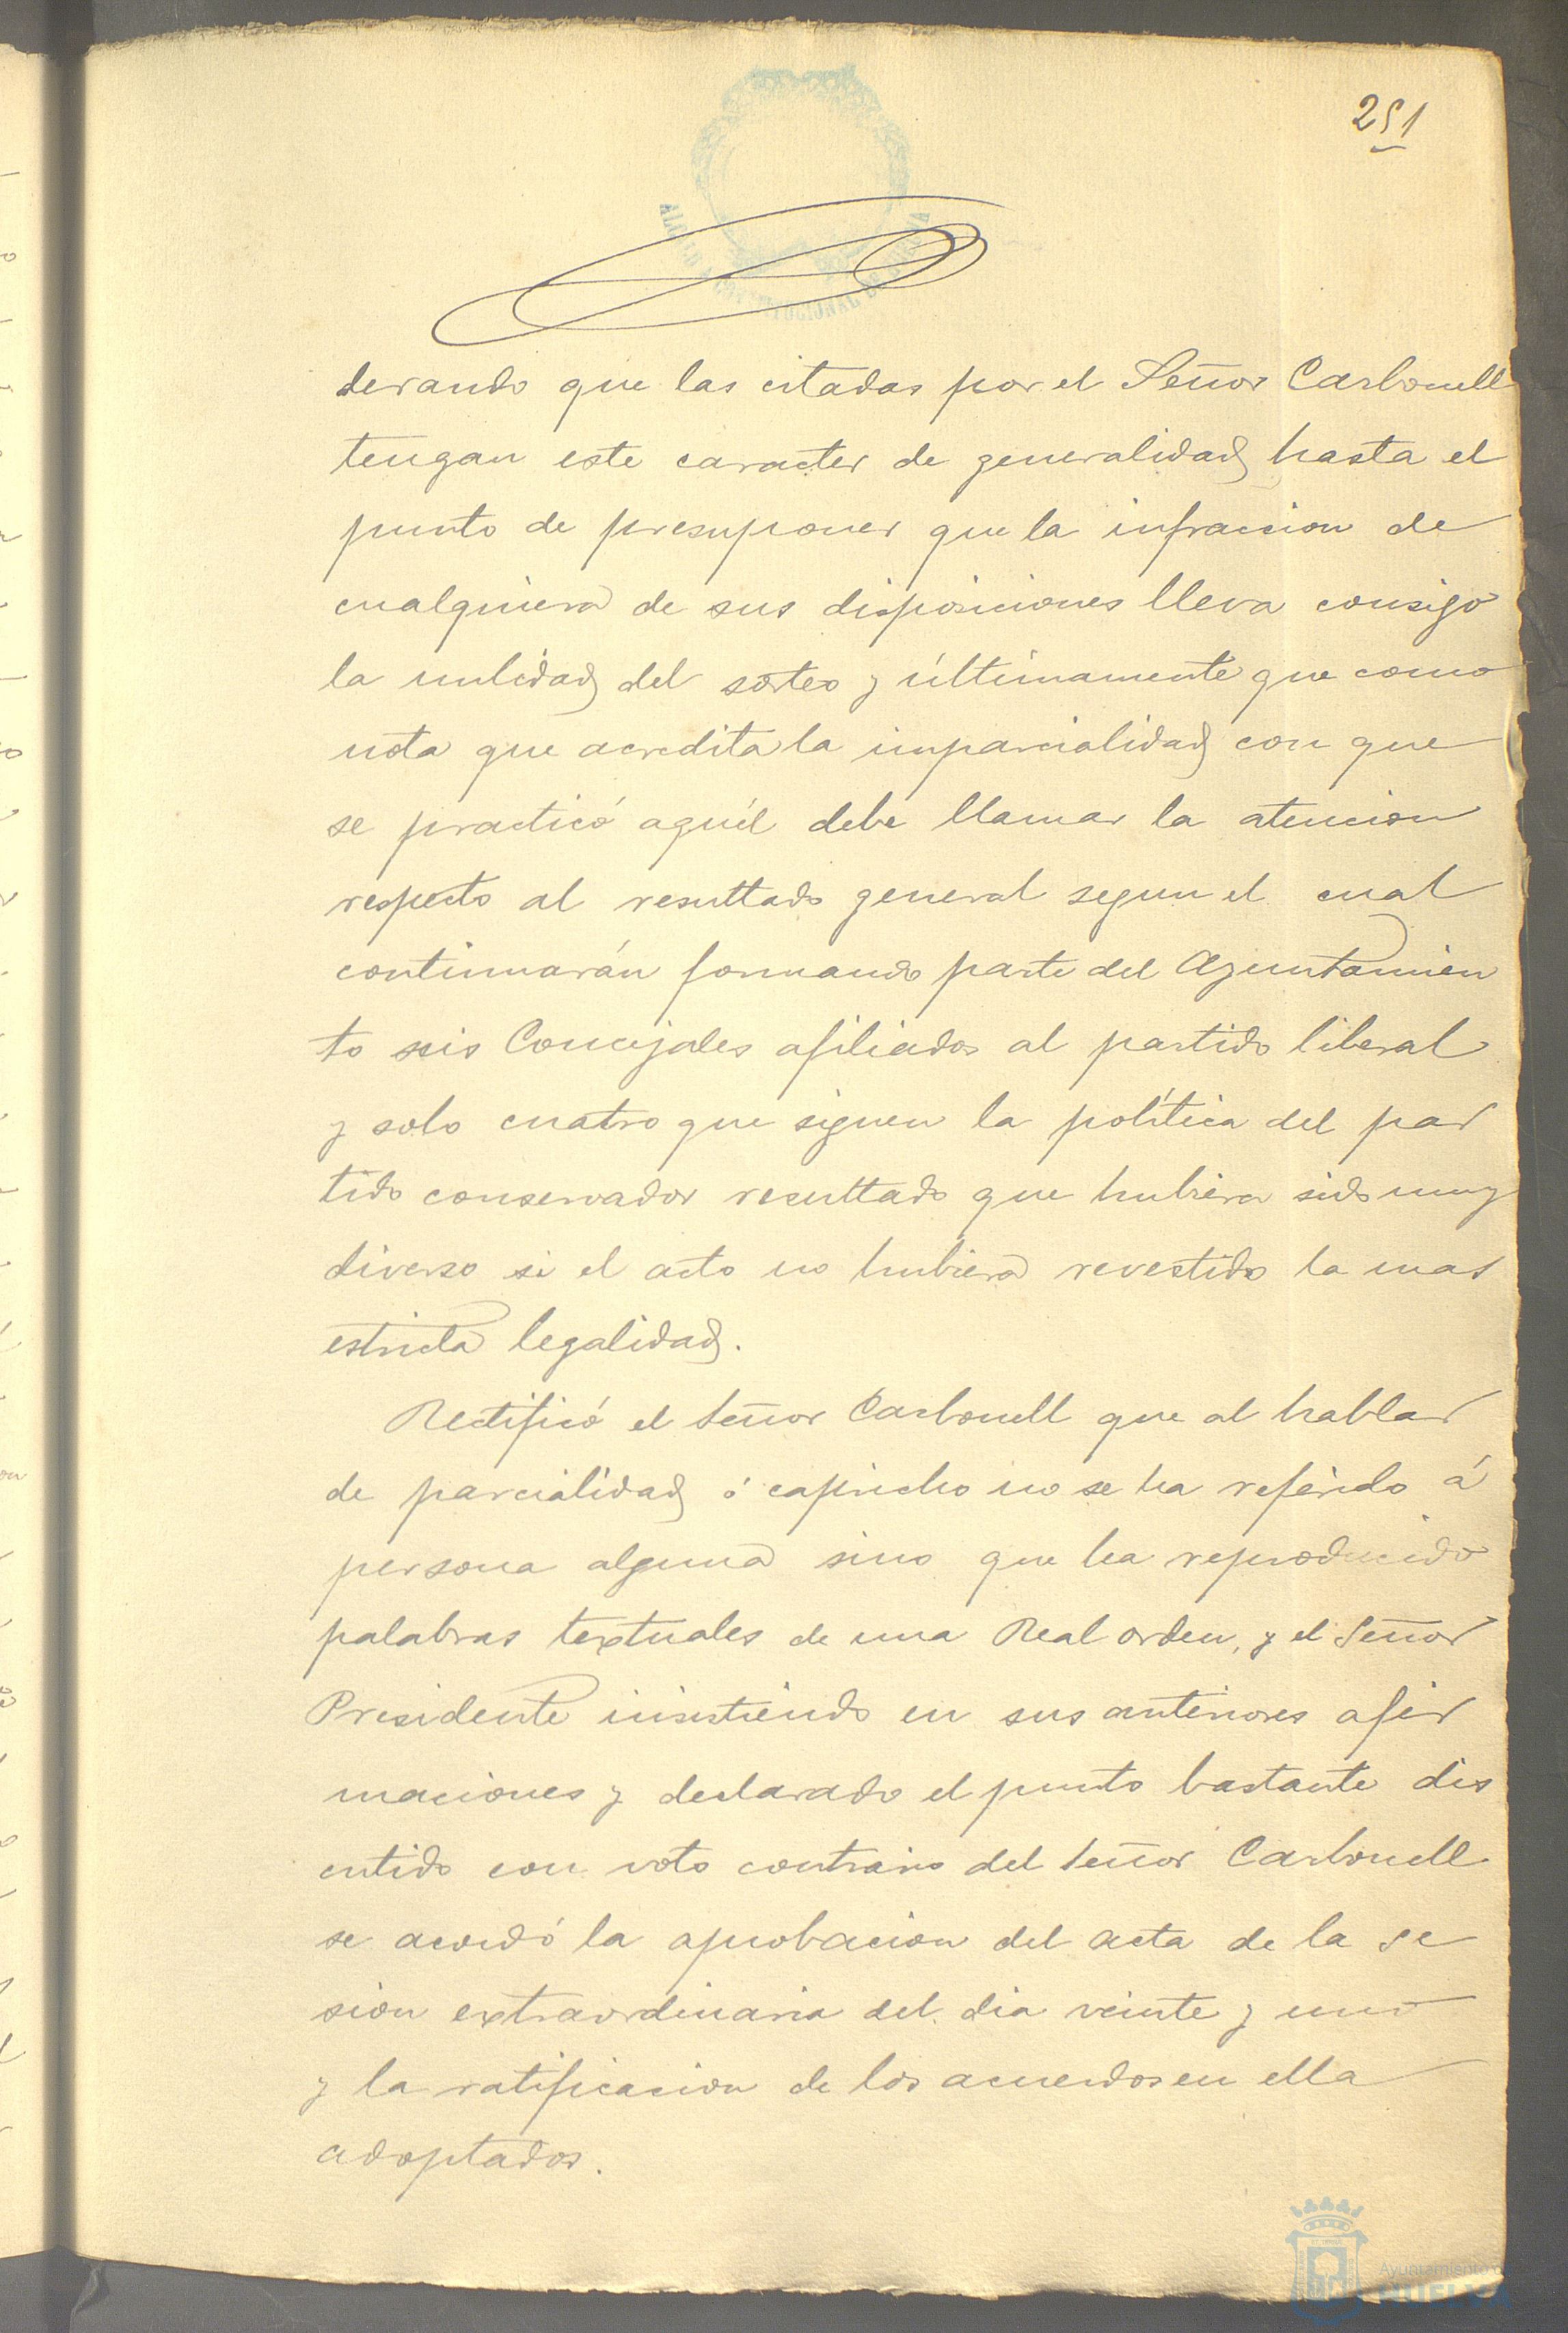 251
derando que las citadas por el Señor Carbonell
tengan este caracter de generalidad hasta el
punto de presuponer que la infraccion de
cualquiera de sus disposiciones lleva consigo
la nulidad del sorteo y últimamente que como
nota que acredita la imparcialidad con que
se practicó aquél debe llamar la atencion
respecto al resultado general segun el cual
continuarán formando parte del Ayuntamien
to seis Concejales afiliados al partido liberal
y solo cuatro que siguen la política del par
tido conservador resultado que hubiera sido muy
diverso si el acto no hubiera revestido la mas
estricta legalidad.
Rectificó el Señor Carbonell que al hablar
de parcialidad ó capricho no se ha referido á
persona alguna sino que ha reproducido
palabras textuales de una Real orden, y el Señor
Presidente insistiendo en sus anteriores afir
maciones y declarado el punto bastante dis
cutido con voto contrario del Señor Carbonell
se acordó la aprobacion del acta de la se
sion extraordinaria del dia veinte y uno
y la ratificacion de los acuerdos en ella
adoptados.
Ayuntamiento de
HUELVA